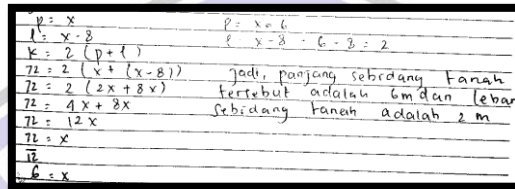 p = x
l = x - 8
K = 2 (p + l)
72 = 2 (x + (x - 8))
72 = 2 (2x + 8x)
72 = 4x + 8x
72 = 12x
72 = x
12
6 = x
p = x = 6
l = x - 8 = 6 - 8 = 2
Jadi, panjang sebidang tanah
tersebut adalah 6m dan lebar
sebidang tanah adalah 2 m